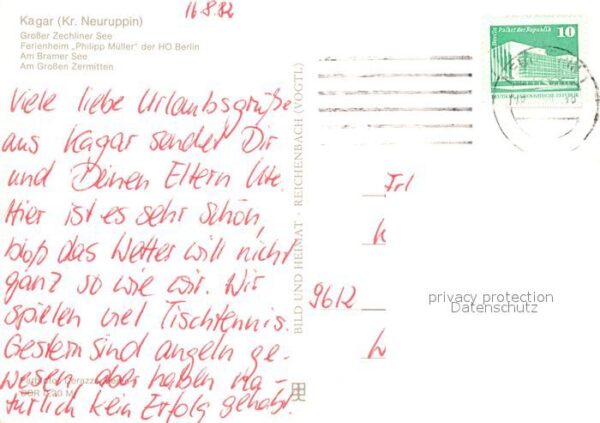 16.8.82
Kagar (Kr. Neuruppin)
Großer Zechliner See
Ferienheim „Philipp Müller" der HO Berlin
Am Bramer See
Am Großen Zermitten
Viele liebe Urlaubsgrüße
aus Kagar sendet Dir
und Deinen Eltern Ute.
Hier ist es sehr schön,
bloß das Wetter will nicht
ganz so wie wir. Wir
spielen viel Tischtennis.
Gestern sind angeln ge-
wesen aber haben na-
türlich kein Erfolg gehabt.
DDR 0,20 M
BILD UND HEIMAT · REICHENBACH (VOGTL)
Berlin, Palast der Republik
10
DEUTSCHE DEMOKRATISCHE REPUBLIK
Frl
K
9612
privacy protection
Datenschutz